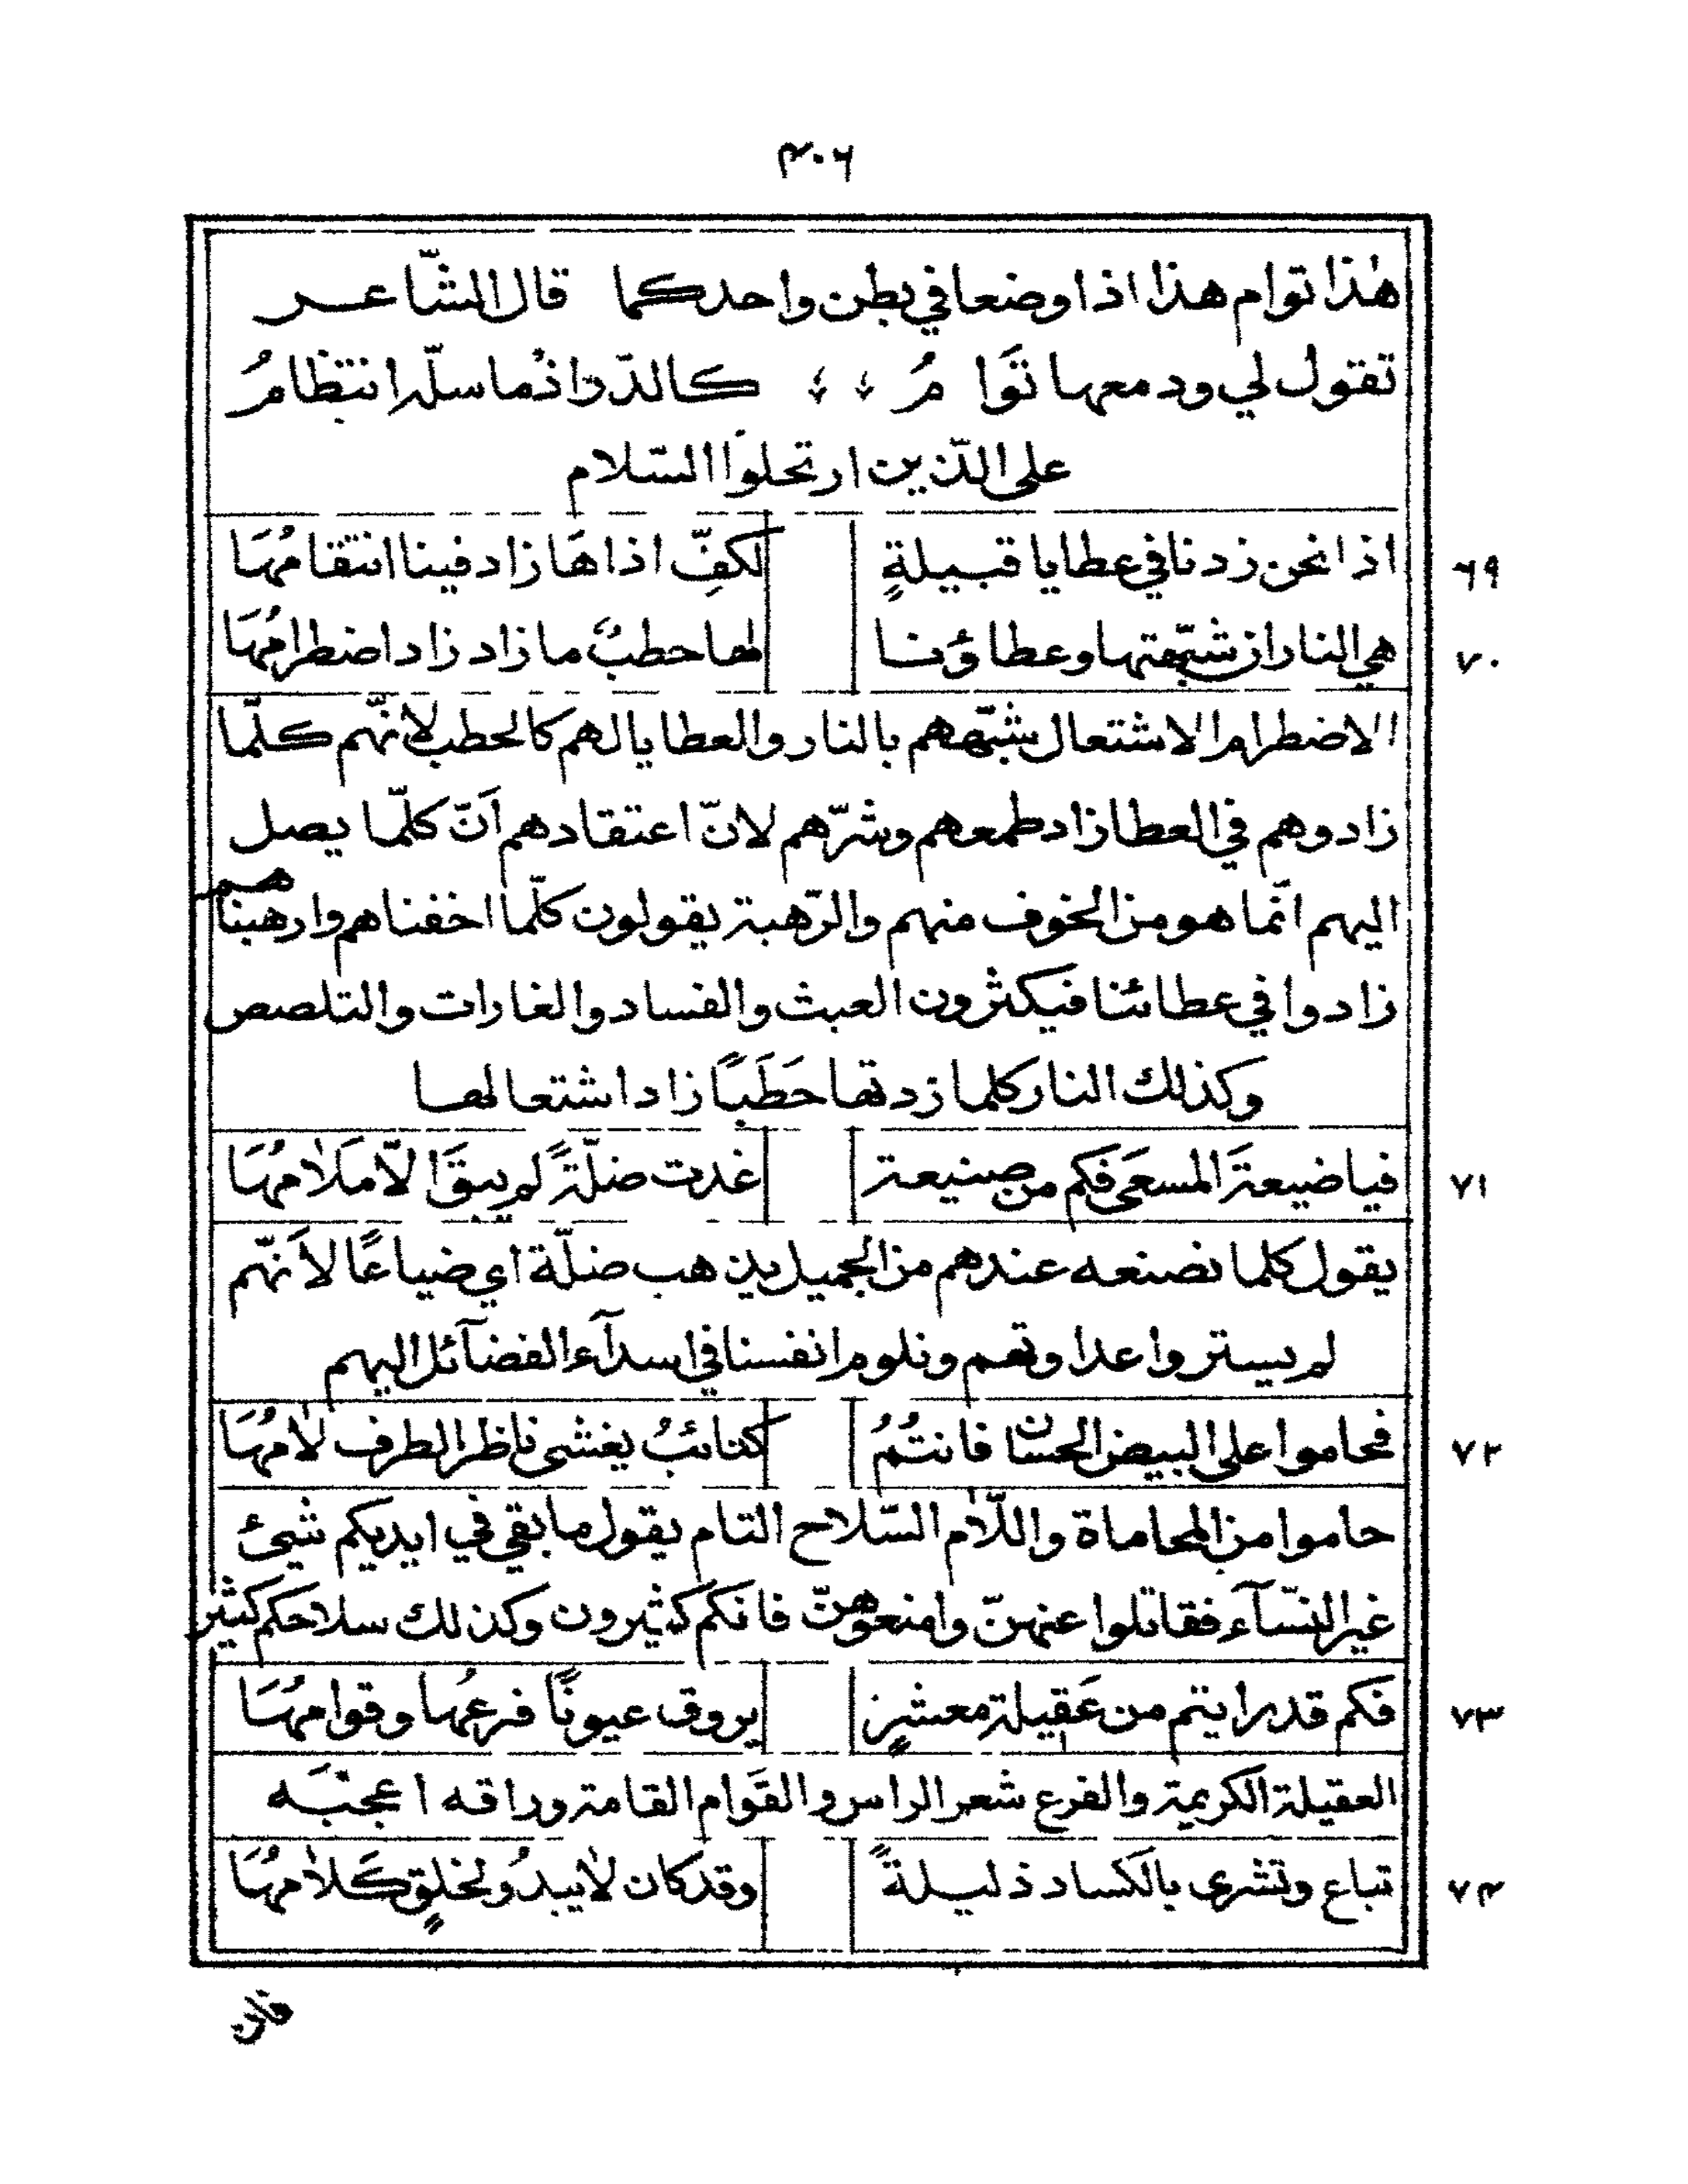 ٣٠٦
هٰذا توام هذا اذا وضعا في بطن واحد كما قال الشّاعر
تقول لي ودمعها تَوَامُ كالدّرّ اذْ ما سلّه انتظامُ
على الذّين ارتحلوا السّلام
٦٩ اذا نحن زدنا في عطايا قبيلةٍ لكفِّ اذاهَا زاد فينا انتقامُهَا
٧٠ هي النار ان شبّهتها وعطاؤنا لها حطبٌ ما زاد زاد اضطرامُهَا
الاضطرام الاشتعال شبّههم بالنار والعطايا لهم كالحطب لانّهم كلّما
زادوهم في العطا زاد طمعهم وشرّهم لانّ اعتقادهم اَنّ كلّما يصل
اليهم انّما هو من الخوف منهم والرّهبة يقولون كلّما اخفناهم وارهبناهم
زادوا في عطائنا فيكثرون العبث والفساد والغارات والتلصص
وكذلك النار كلما زدتها حَطَبًا زاد اشتعالها
٧١ فيا ضيعةَ المسعَى فكم من صنيعة غدت ضلّةً لم يبقَ الّا مَلَامُهَا
يقول كلما نصنعه عندهم من الجميل يذهب ضلّة اي ضياعًا لاَنّهم
لم يستروا عداوتهم ونلوم انفسنا في اسدآء الفضآئل اليهم
٧٢ فحاموا على البيض الحسان فانتُمُ كتائبُ يغشى ناظر الطرف لامُهَا
حاموا من المحاماة واللّام السّلاح التام يقول ما بقي في ايديكم شيئ
غير النسّآء فقاتلوا عنهنّ وامنعوهنّ فانكم كثيرون وكذلك سلاحكم كثير
٧٣ فكم قد رايتم من عَقيلةِ معشرٍ يروق عيونًا فرعُها وقوامُهَا
العقيلة الكريمة والفرع شعر الراس والقَوام القامة وراقه اعجبَه
٧٤ تباع وتشرى بالكساد ذليلةً وقد كان لا يبدُو لخلقٍ كَلامُهَا
فان